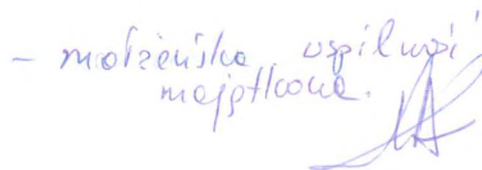 - małżeńska wspólność
majątkowa.